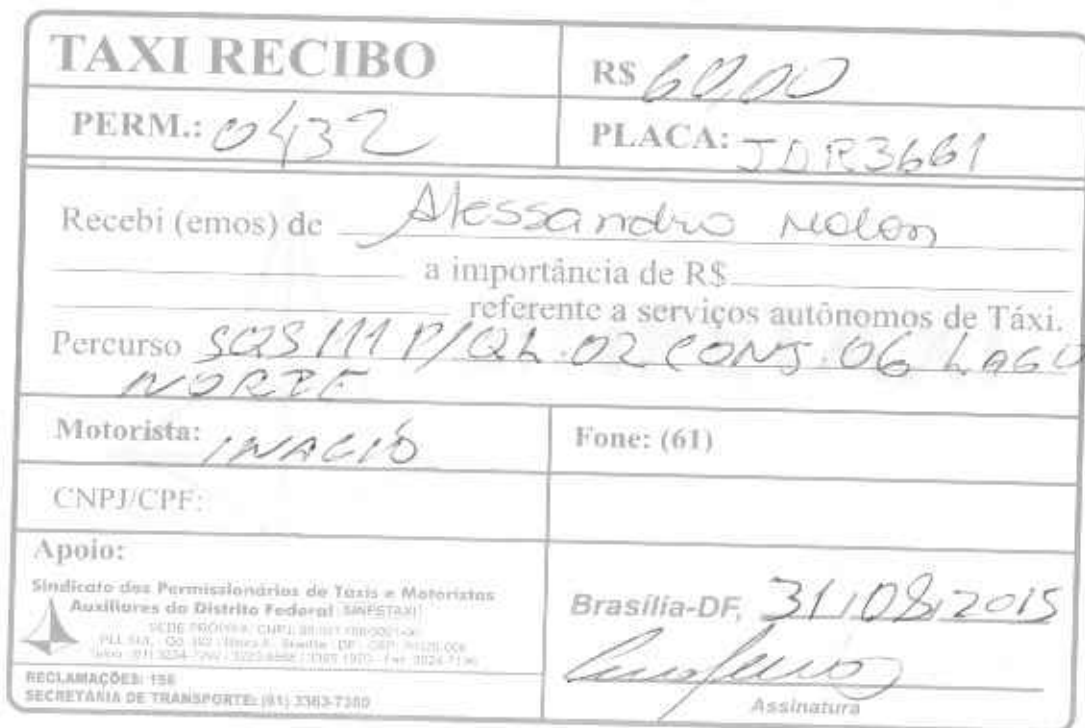 TAXI RECIBO
R$ 60,00
PERM.: 0432
PLACA: JDR3661
Recebi (emos) de Alessandro Molon
a importância de R$
referente a serviços autônomos de Táxi.
Percurso SQS 111 P/ QL.02 CONJ.06 LAGO
NORTE
Motorista: INACIO
Fone: (61)
CNPJ/CPF:
Apoio:
Sindicato dos Permissionários de Táxis e Motoristas
Auxiliares do Distrito Federal SINPETAXI
RECLAMAÇÕES: 156
SECRETARIA DE TRANSPORTE: (61) 3363-7350
Brasília-DF, 31/08/2015
Assinatura